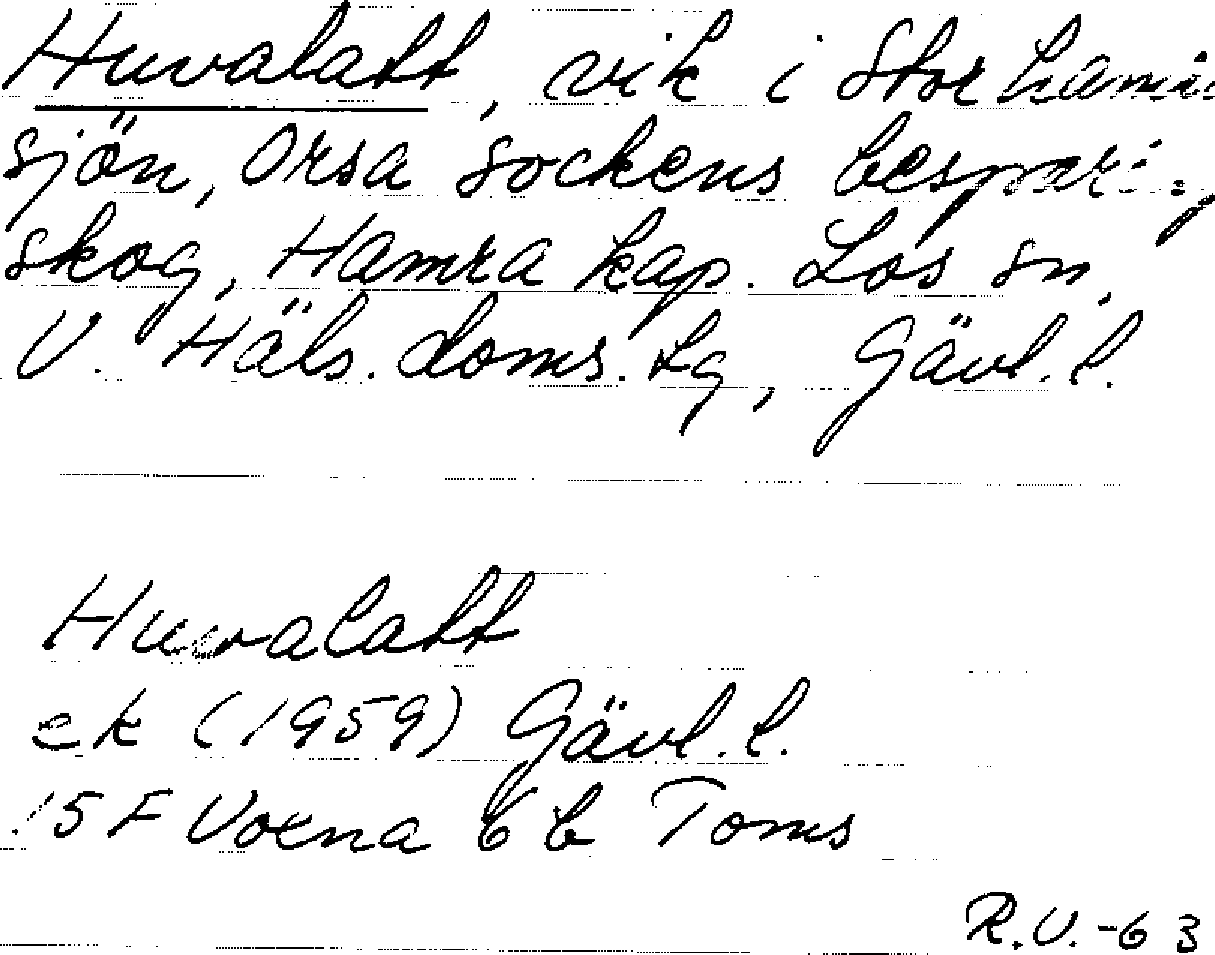 Huvalatt, vik i Storhamra
sjön, Orsa sockens besparings
skog, Hamra kap. Los sn,
V. Häls. doms. Lg, Gävl. l.
Huvalatt
ek (1959) Gävl. l.
15 F Voxna 6 b Toms
R.V.-63